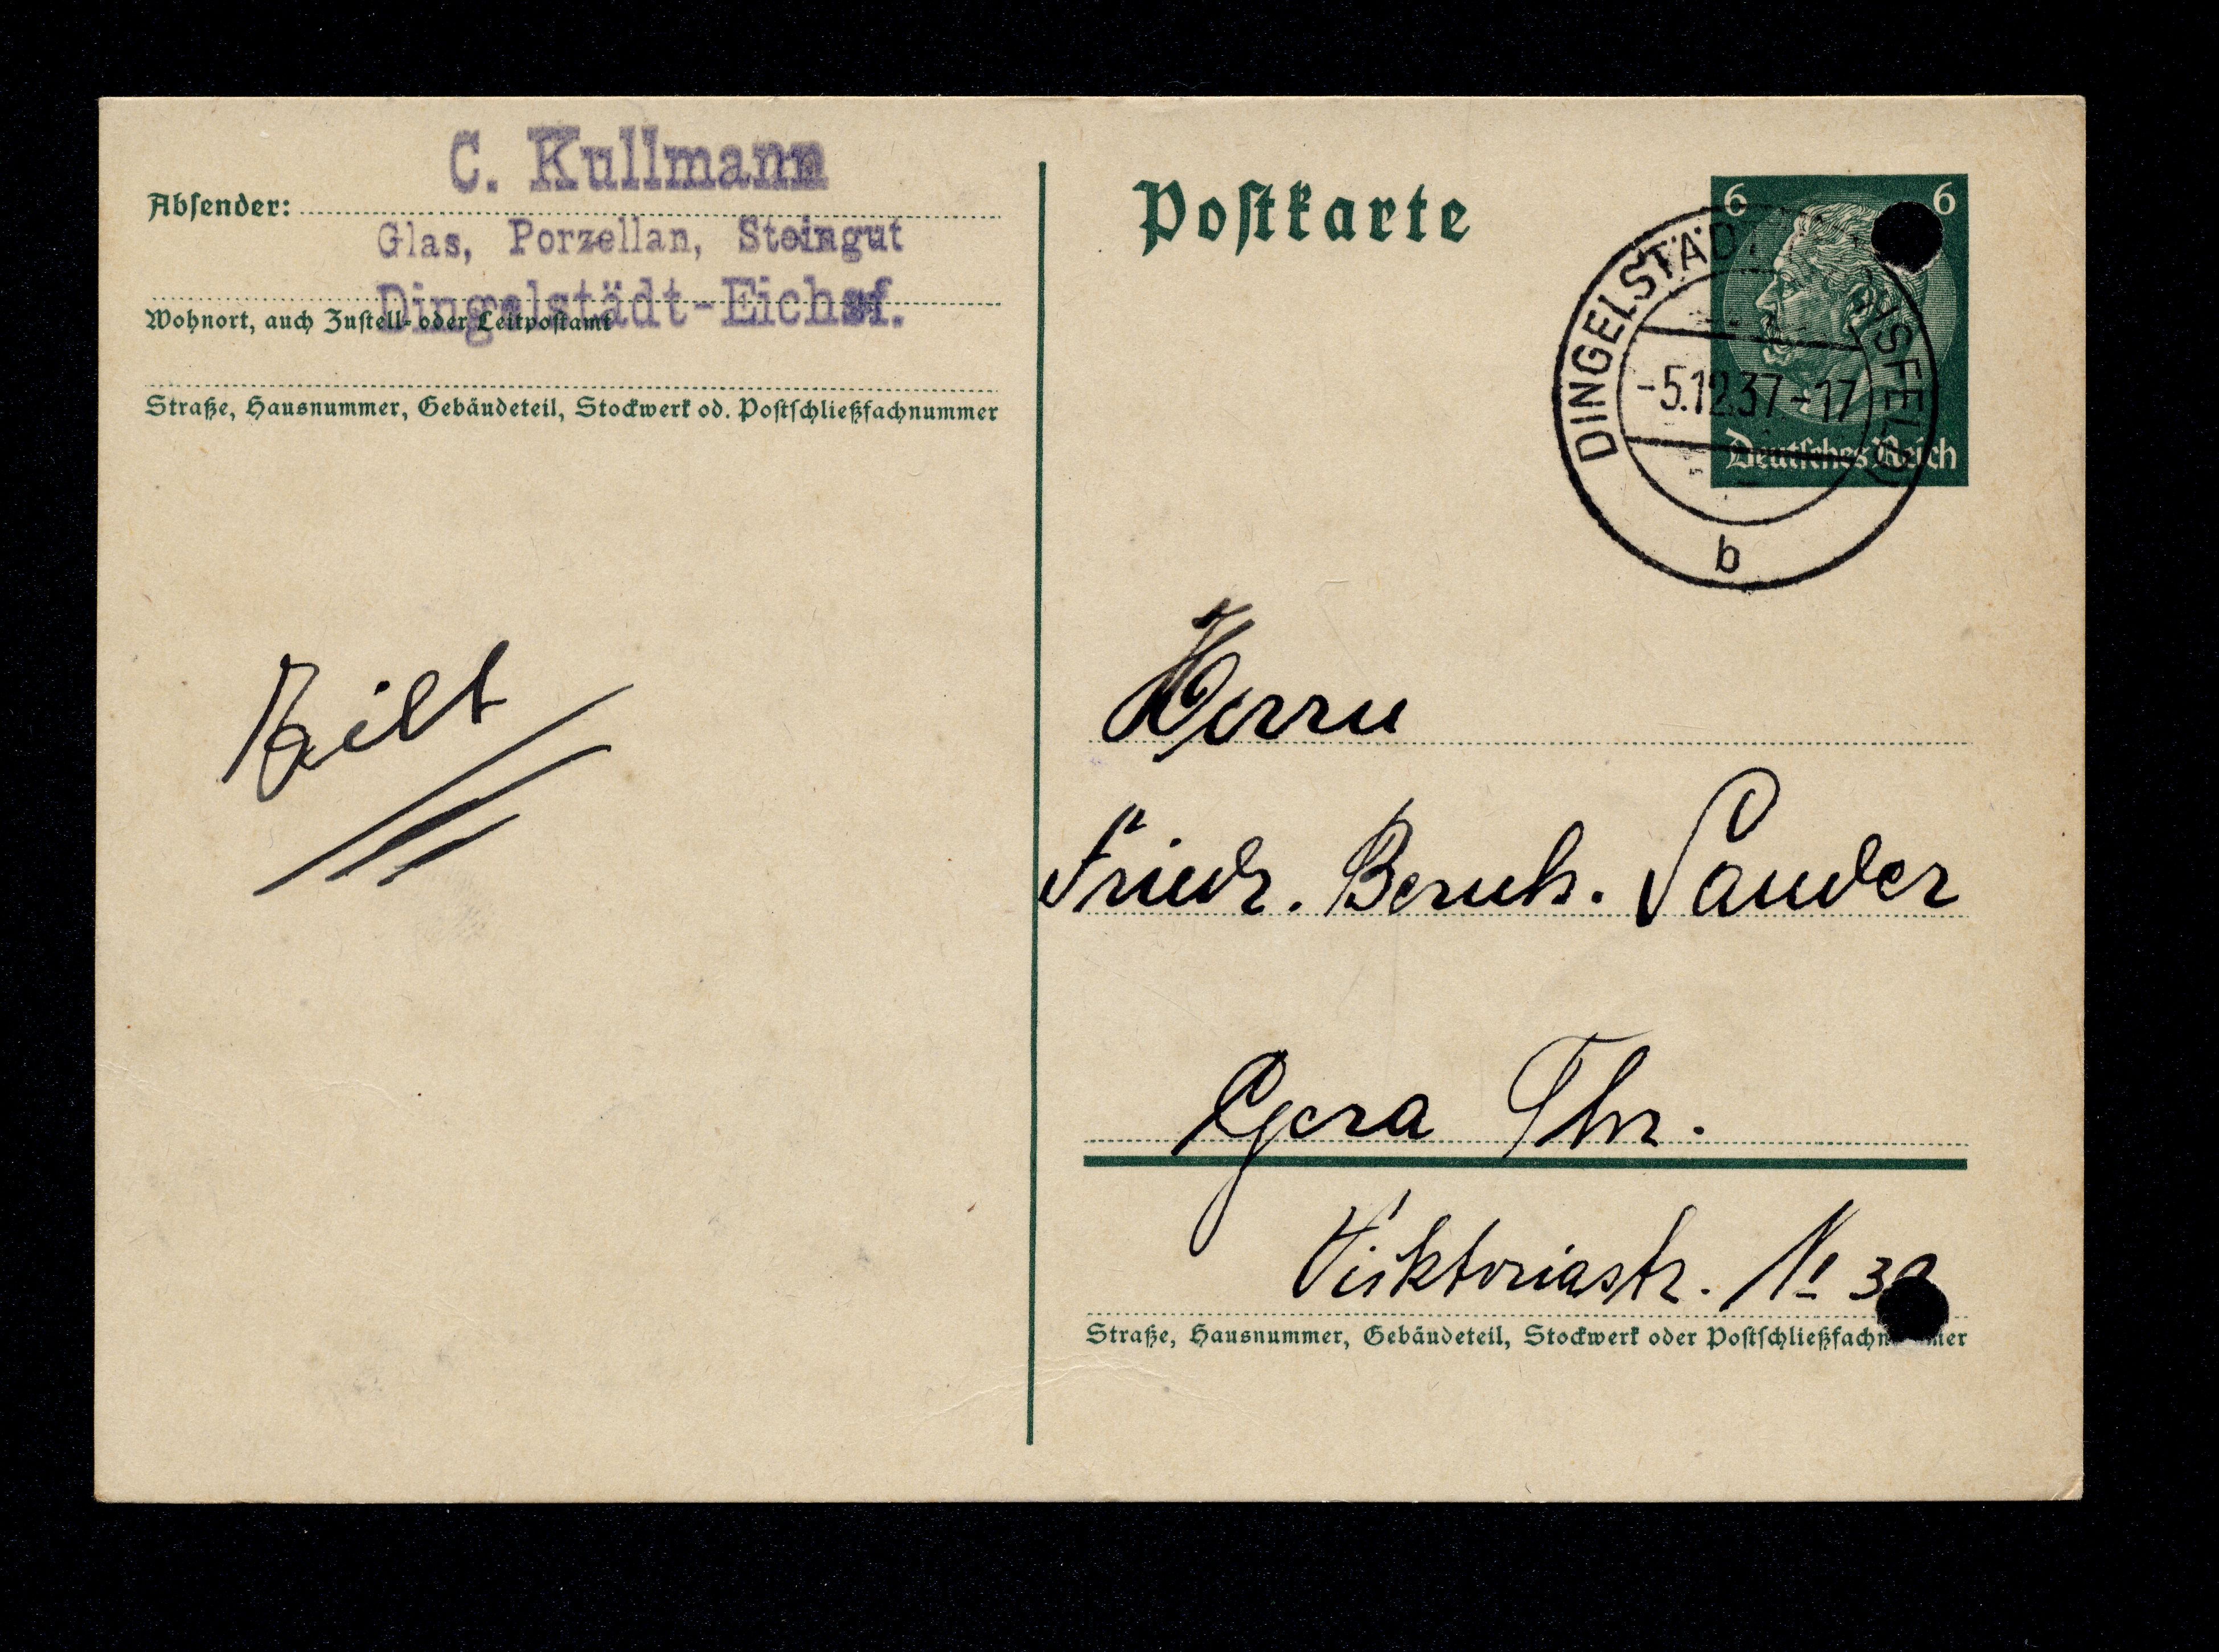 C. Kullmann
Absender:
Glas, Porzellan, Steingut
Dingelstädt-Eichsf.
Wohnort, auch Zustell- oder Leitpostamt
Straße, Hausnummer, Gebäudeteil, Stockwerk od. Postschließfachnummer
Eilt
Postkarte
6 6
DINGELSTÄDT
-5.12.37-17
Deutsches Reich
b
Herrn
Friedr. Bernh. Sander
Gera Thr.
Viktoriastr. №
Straße, Hausnummer, Gebäudeteil, Stockwerk oder